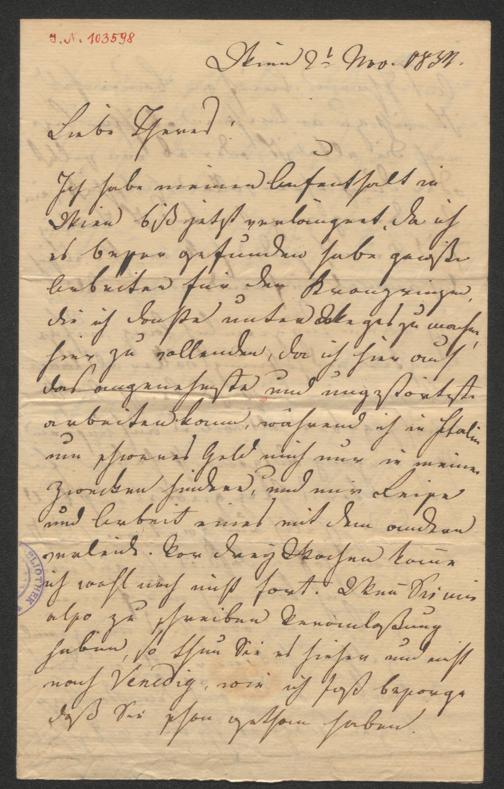 J. N. 103598
Wien 2t Nov. 1834.
Liebe Theres!
Ich habe meinen Aufenthalt in
Wien biß jetzt verlängert, da ich
es besser gefunden habe gewiße
Arbeiten für den Kronprinzen,
die ich dachte unter Weges zu machen,
hier zu vollenden, da ich hier auf
das angenehmste und ungestörteste
arbeiten kann, während ich in Italien
um schweres Geld mich nur in meinen
Zwecken hindere, und mir Reise
und Arbeit eines mit dem andern
verleide. Vor drey Wochen komme
ich wohl noch nicht fort. Wenn Sie mir
also zu schreiben Veranlaßung
haben, so thun Sie es hieher und nicht
nach Venedig, wie ich fast besorge
daß Sie schon gethan haben.
BLIOTHEK